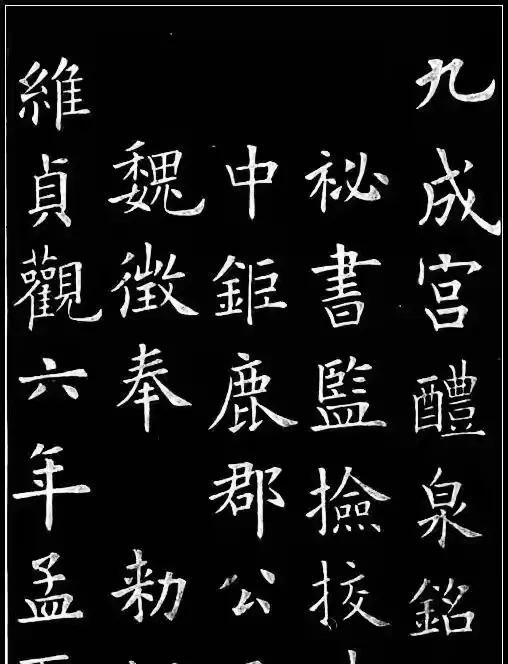 九成宫醴泉銘
祕書監撿挍
中鉅鹿郡公
魏徵奉勑
維貞觀六年孟